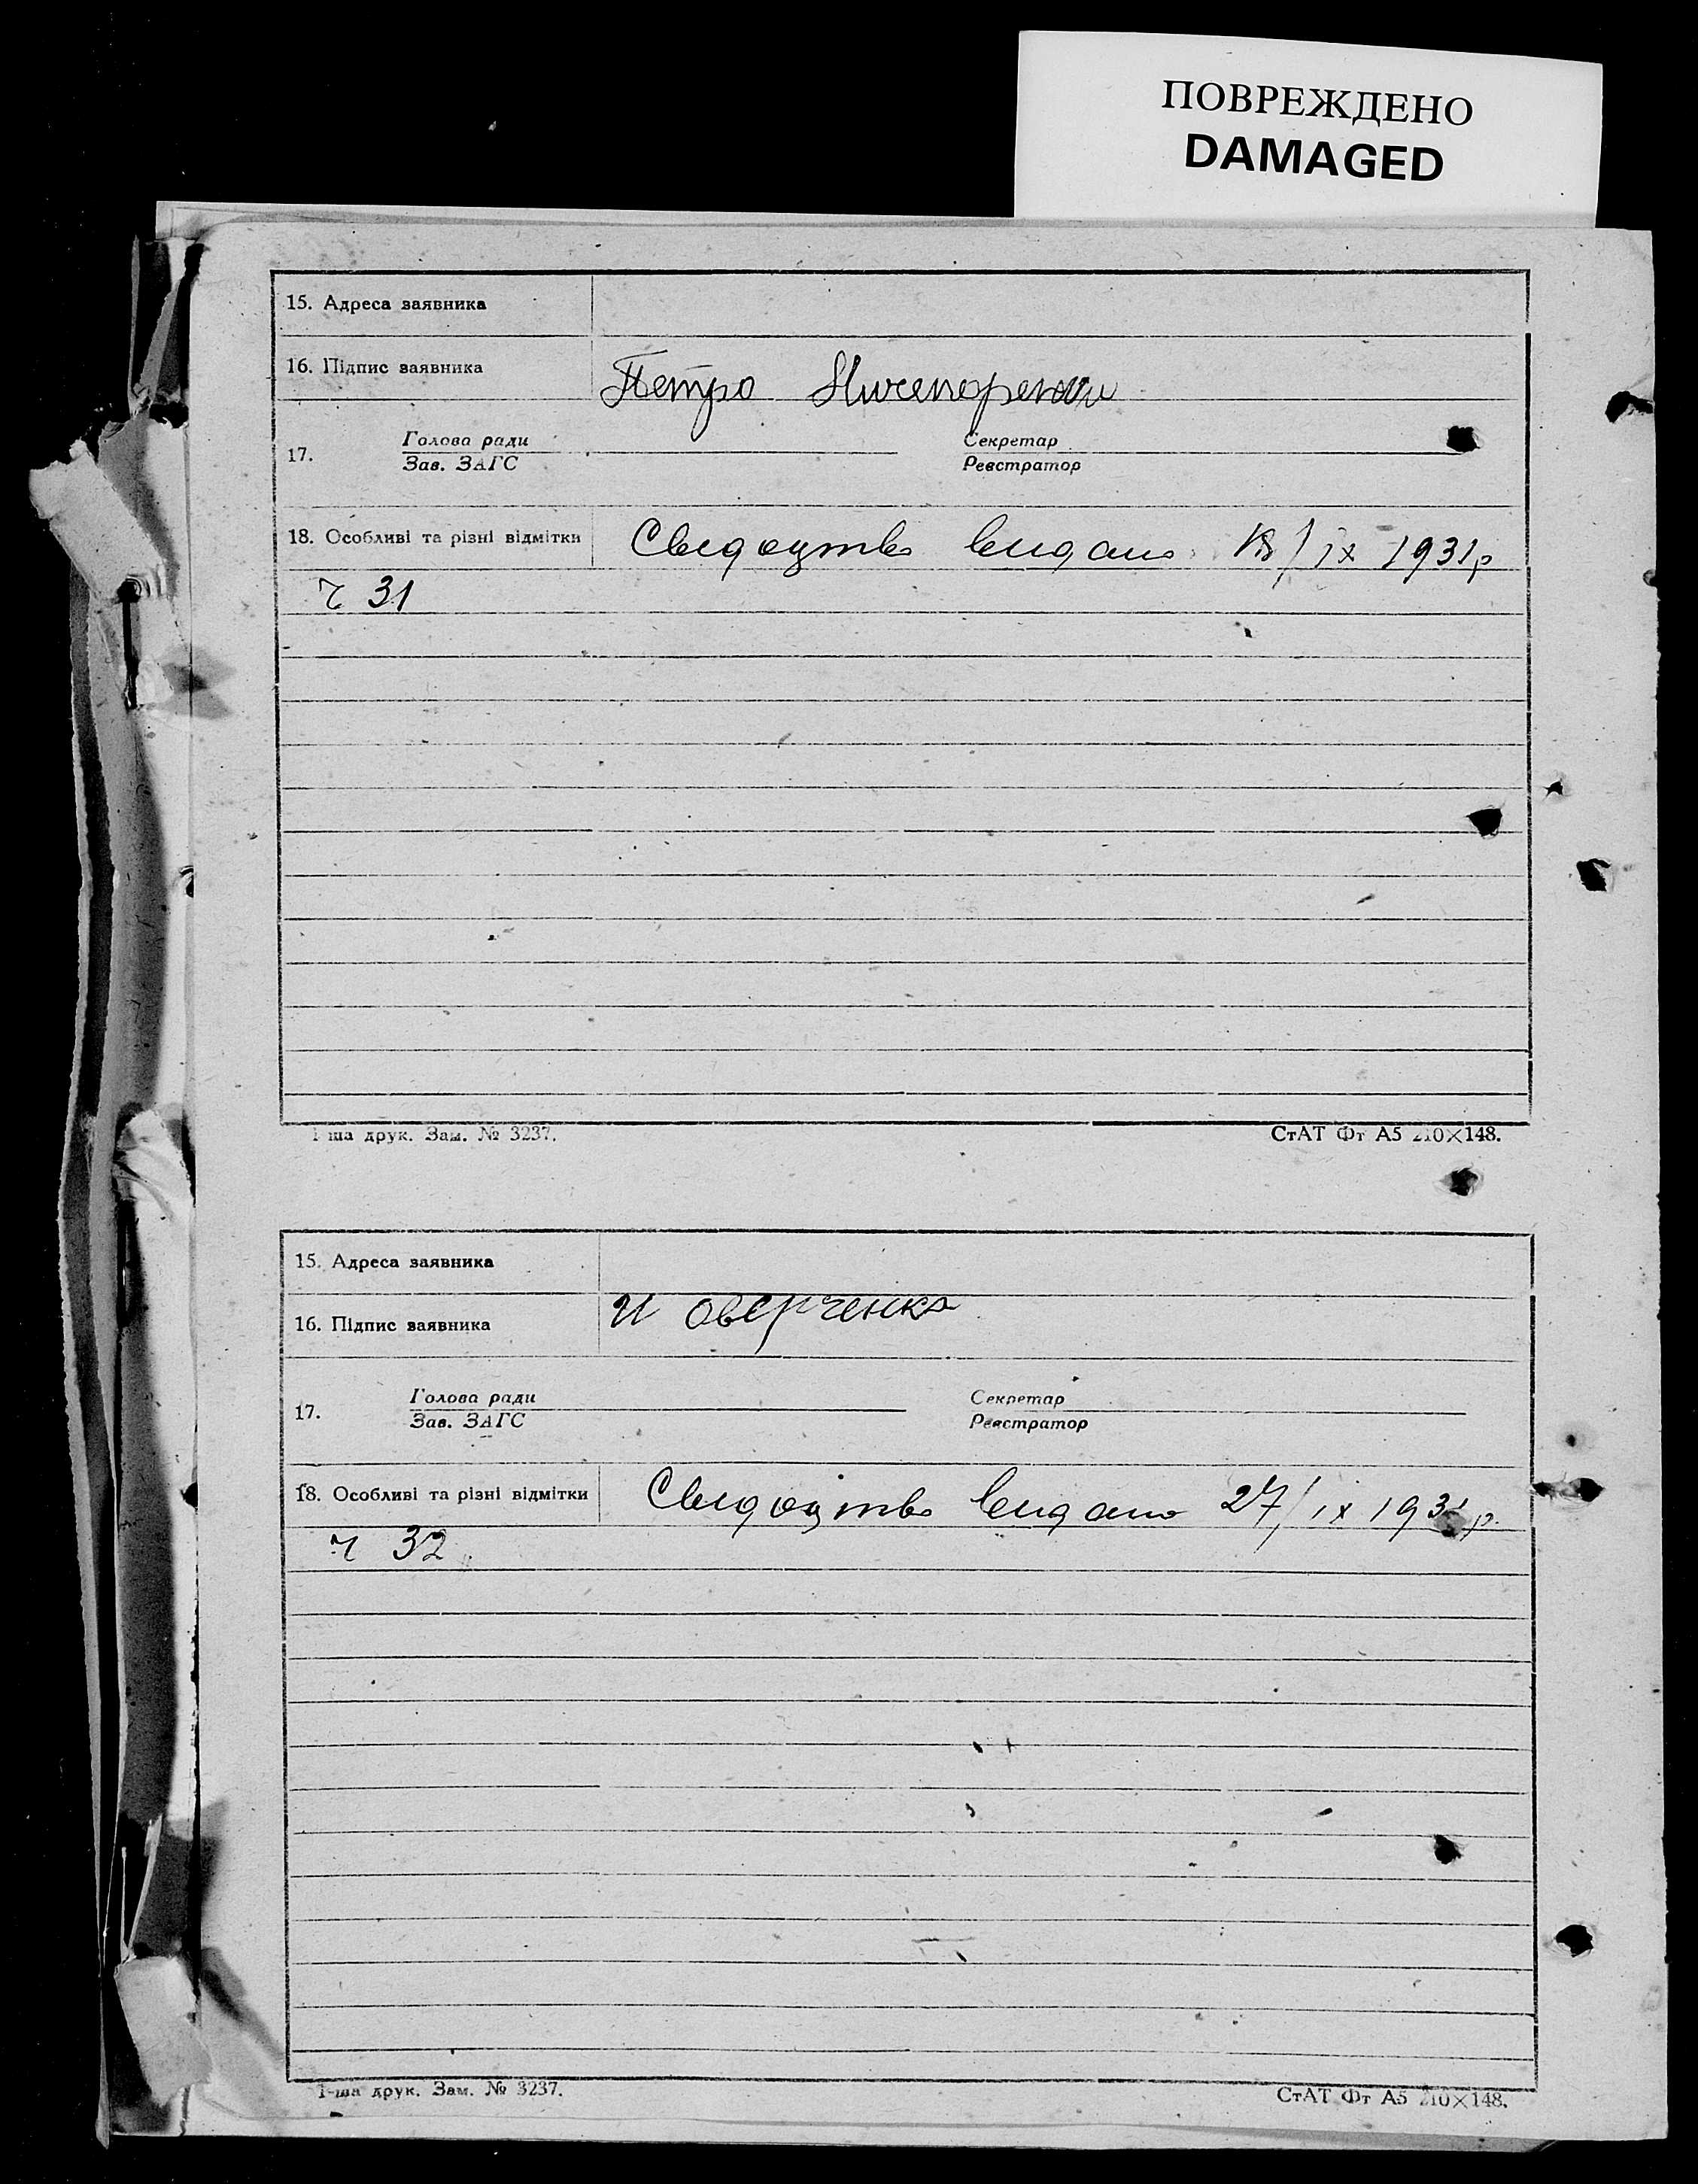 ПОВРЕЖДЕНО
DAMAGED
15. Адреса заявника
16. Підпис заявника Петро
17. Голова ради Секретар
Зав. ЗАГС Реєстратор
18. Особливі та різні відмітки Свидоцтво видано /ІХ 1931 р
ч 31
1-ша друк. Зам. № 3237. СтАТ Фт А5 210×148.
15. Адреса заявника
16. Підпис заявника И Оверченко
17. Голова ради Секретар
Зав. ЗАГС Реєстратор
18. Особливі та різні відмітки Свидоцтво видано 27/ІХ 1931 р.
ч 32
1-ша друк. Зам. № 3237. СтАТ Фт А5 210×148.